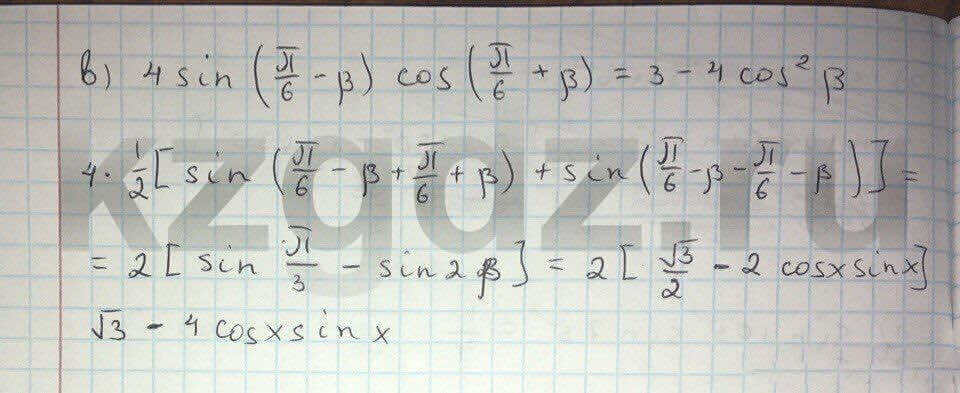 в) 4 sin (π/6 - β) cos (π/6 + β) = 3 - 4 cos² β
4 · 1/2 [ sin (π/6 - β + π/6 + β) + sin (π/6 - β - π/6 - β ) ] =
= 2 [ sin π/3 - sin 2 β ] = 2 [ √3/2 - 2 cosx sinx ]
√3 - 4 cosx sin x
kzgdz.ru